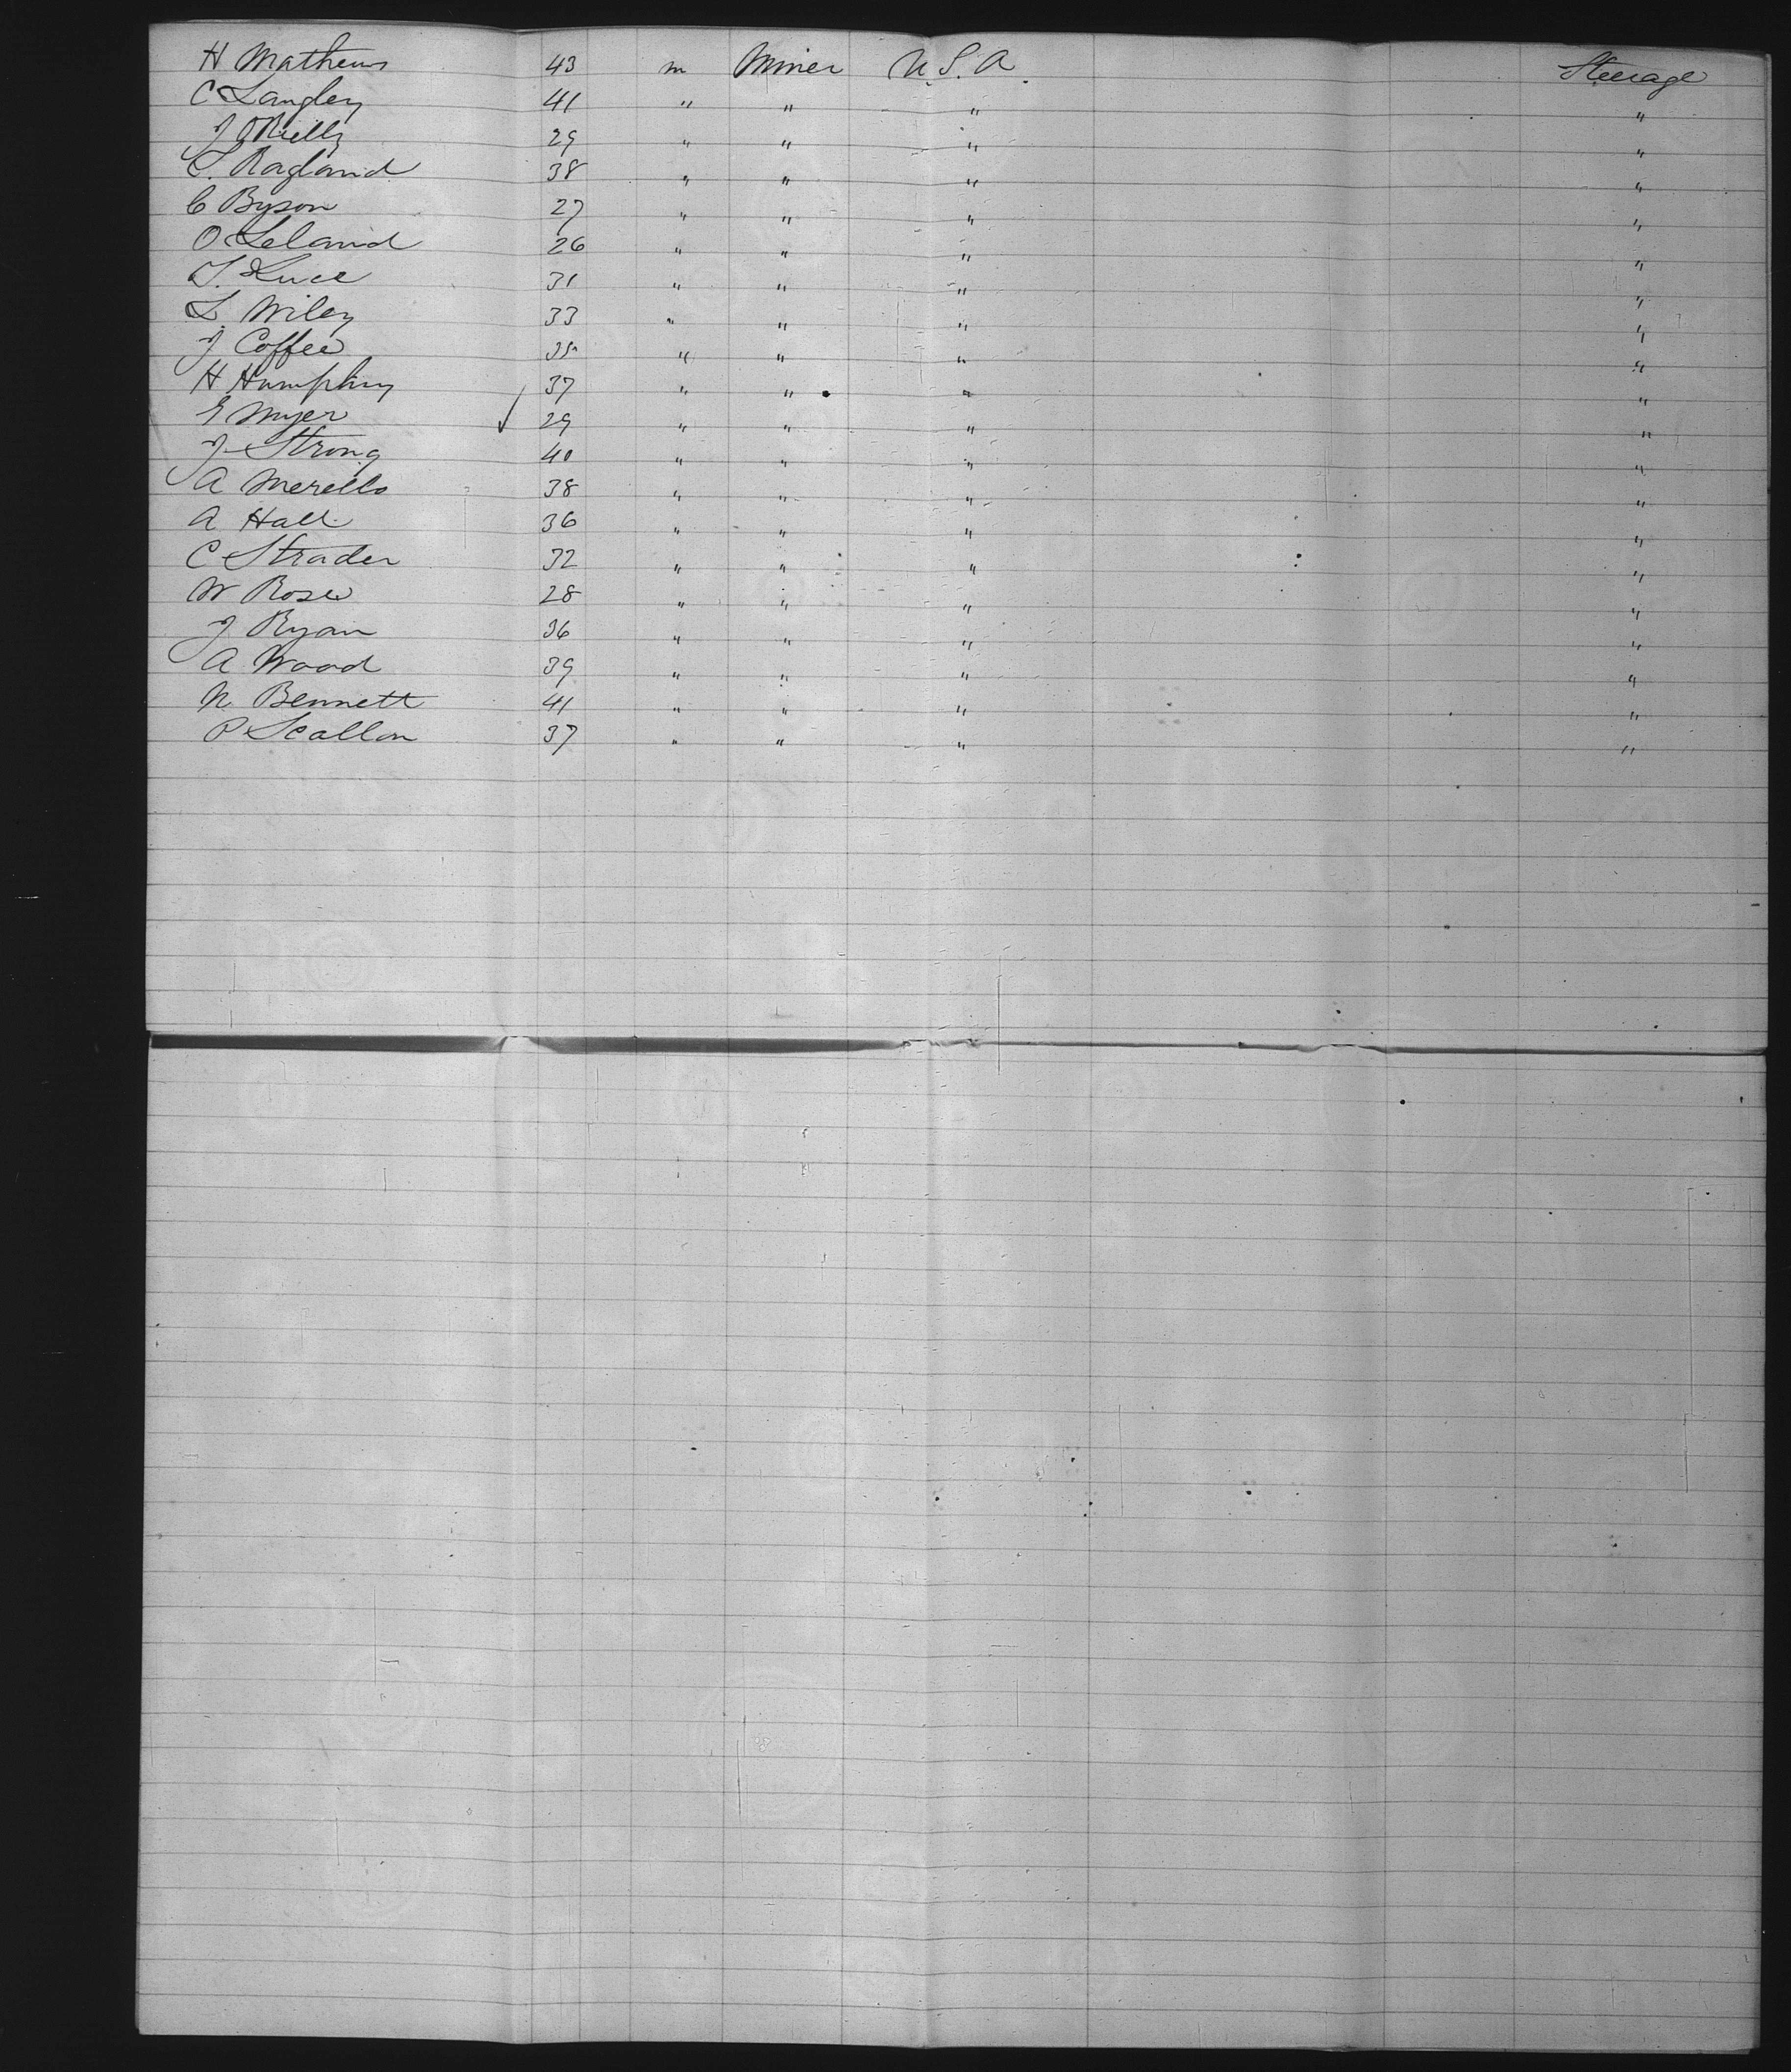 H Mathews 43 m Miner U.S.A. Steerage
C Langley 41 " " " "
J O'Rielly 29 " " " "
L. Ragland 38 " " " "
C Byson 27 " " " "
O Leland 26 " " " "
T. Luce 31 " " " "
L. Wiley 33 " " " "
J Coffee 35 " " " "
H Humphry 37 " " " "
E Myer ✓ 29 " " " "
J Strong 40 " " " "
A Merello 38 " " " "
A Hall 36 " " " "
C Strader 32 " " " "
W Rose 28 " " " "
J Ryan 36 " " " "
A Wood 39 " " " "
N Bennett 41 " " " "
P Scallon 37 " " " "